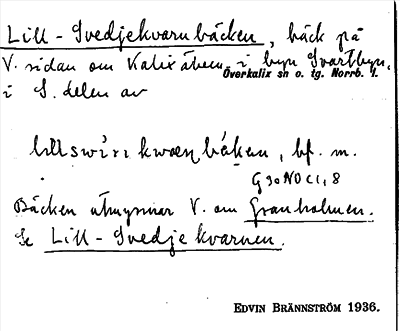 Lill-Svedjekvarnbäcken, bäck på
V. sidan om Kalixälven i byn Svartbyn,
Överkalix sn o. tg. Norrb. l.
i S. delen av
bäcken, bf. m.
Bäcken utmynnar V. om Granholmen.
Se Lill-Svedjekvarnen.
EDVIN BRÄNNSTRÖM 1936.